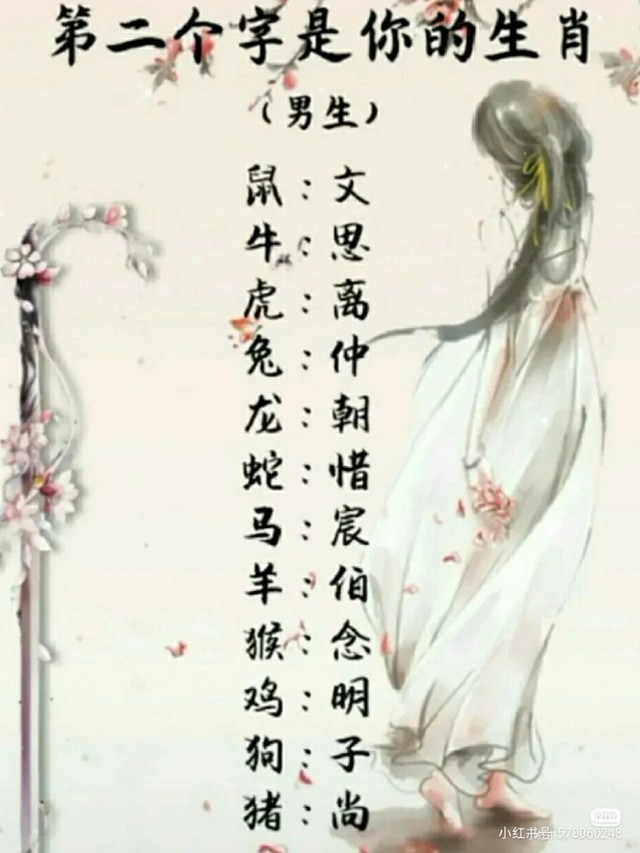 第二个字是你的生肖
（男生）
鼠：文
牛：思
虎：离
兔：仲
龙：朝
蛇：惜
马：宸
羊：伯
猴：念
鸡：明
狗：子
猪：尚
小红书号:570060248